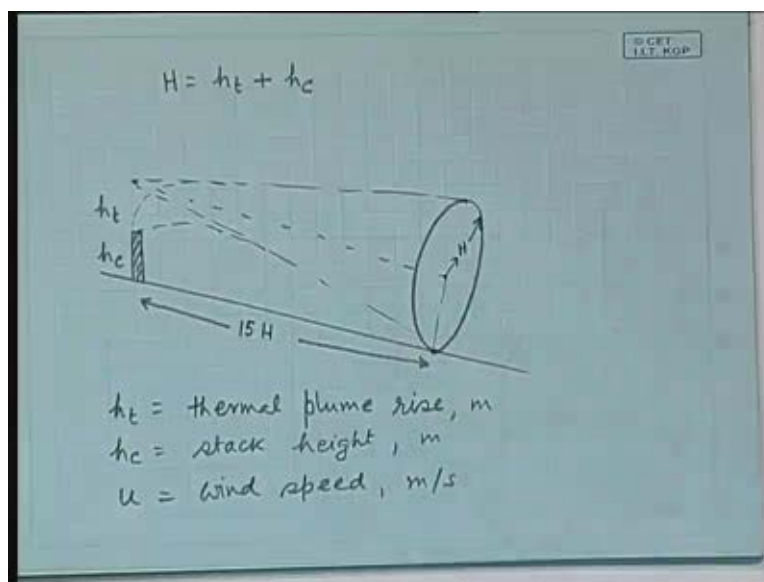 © CET
I.I.T. KGP
H = ht + hc
ht
hc
H
15 H
ht = thermal plume rise, m
hc = stack height, m
u = wind speed, m/s